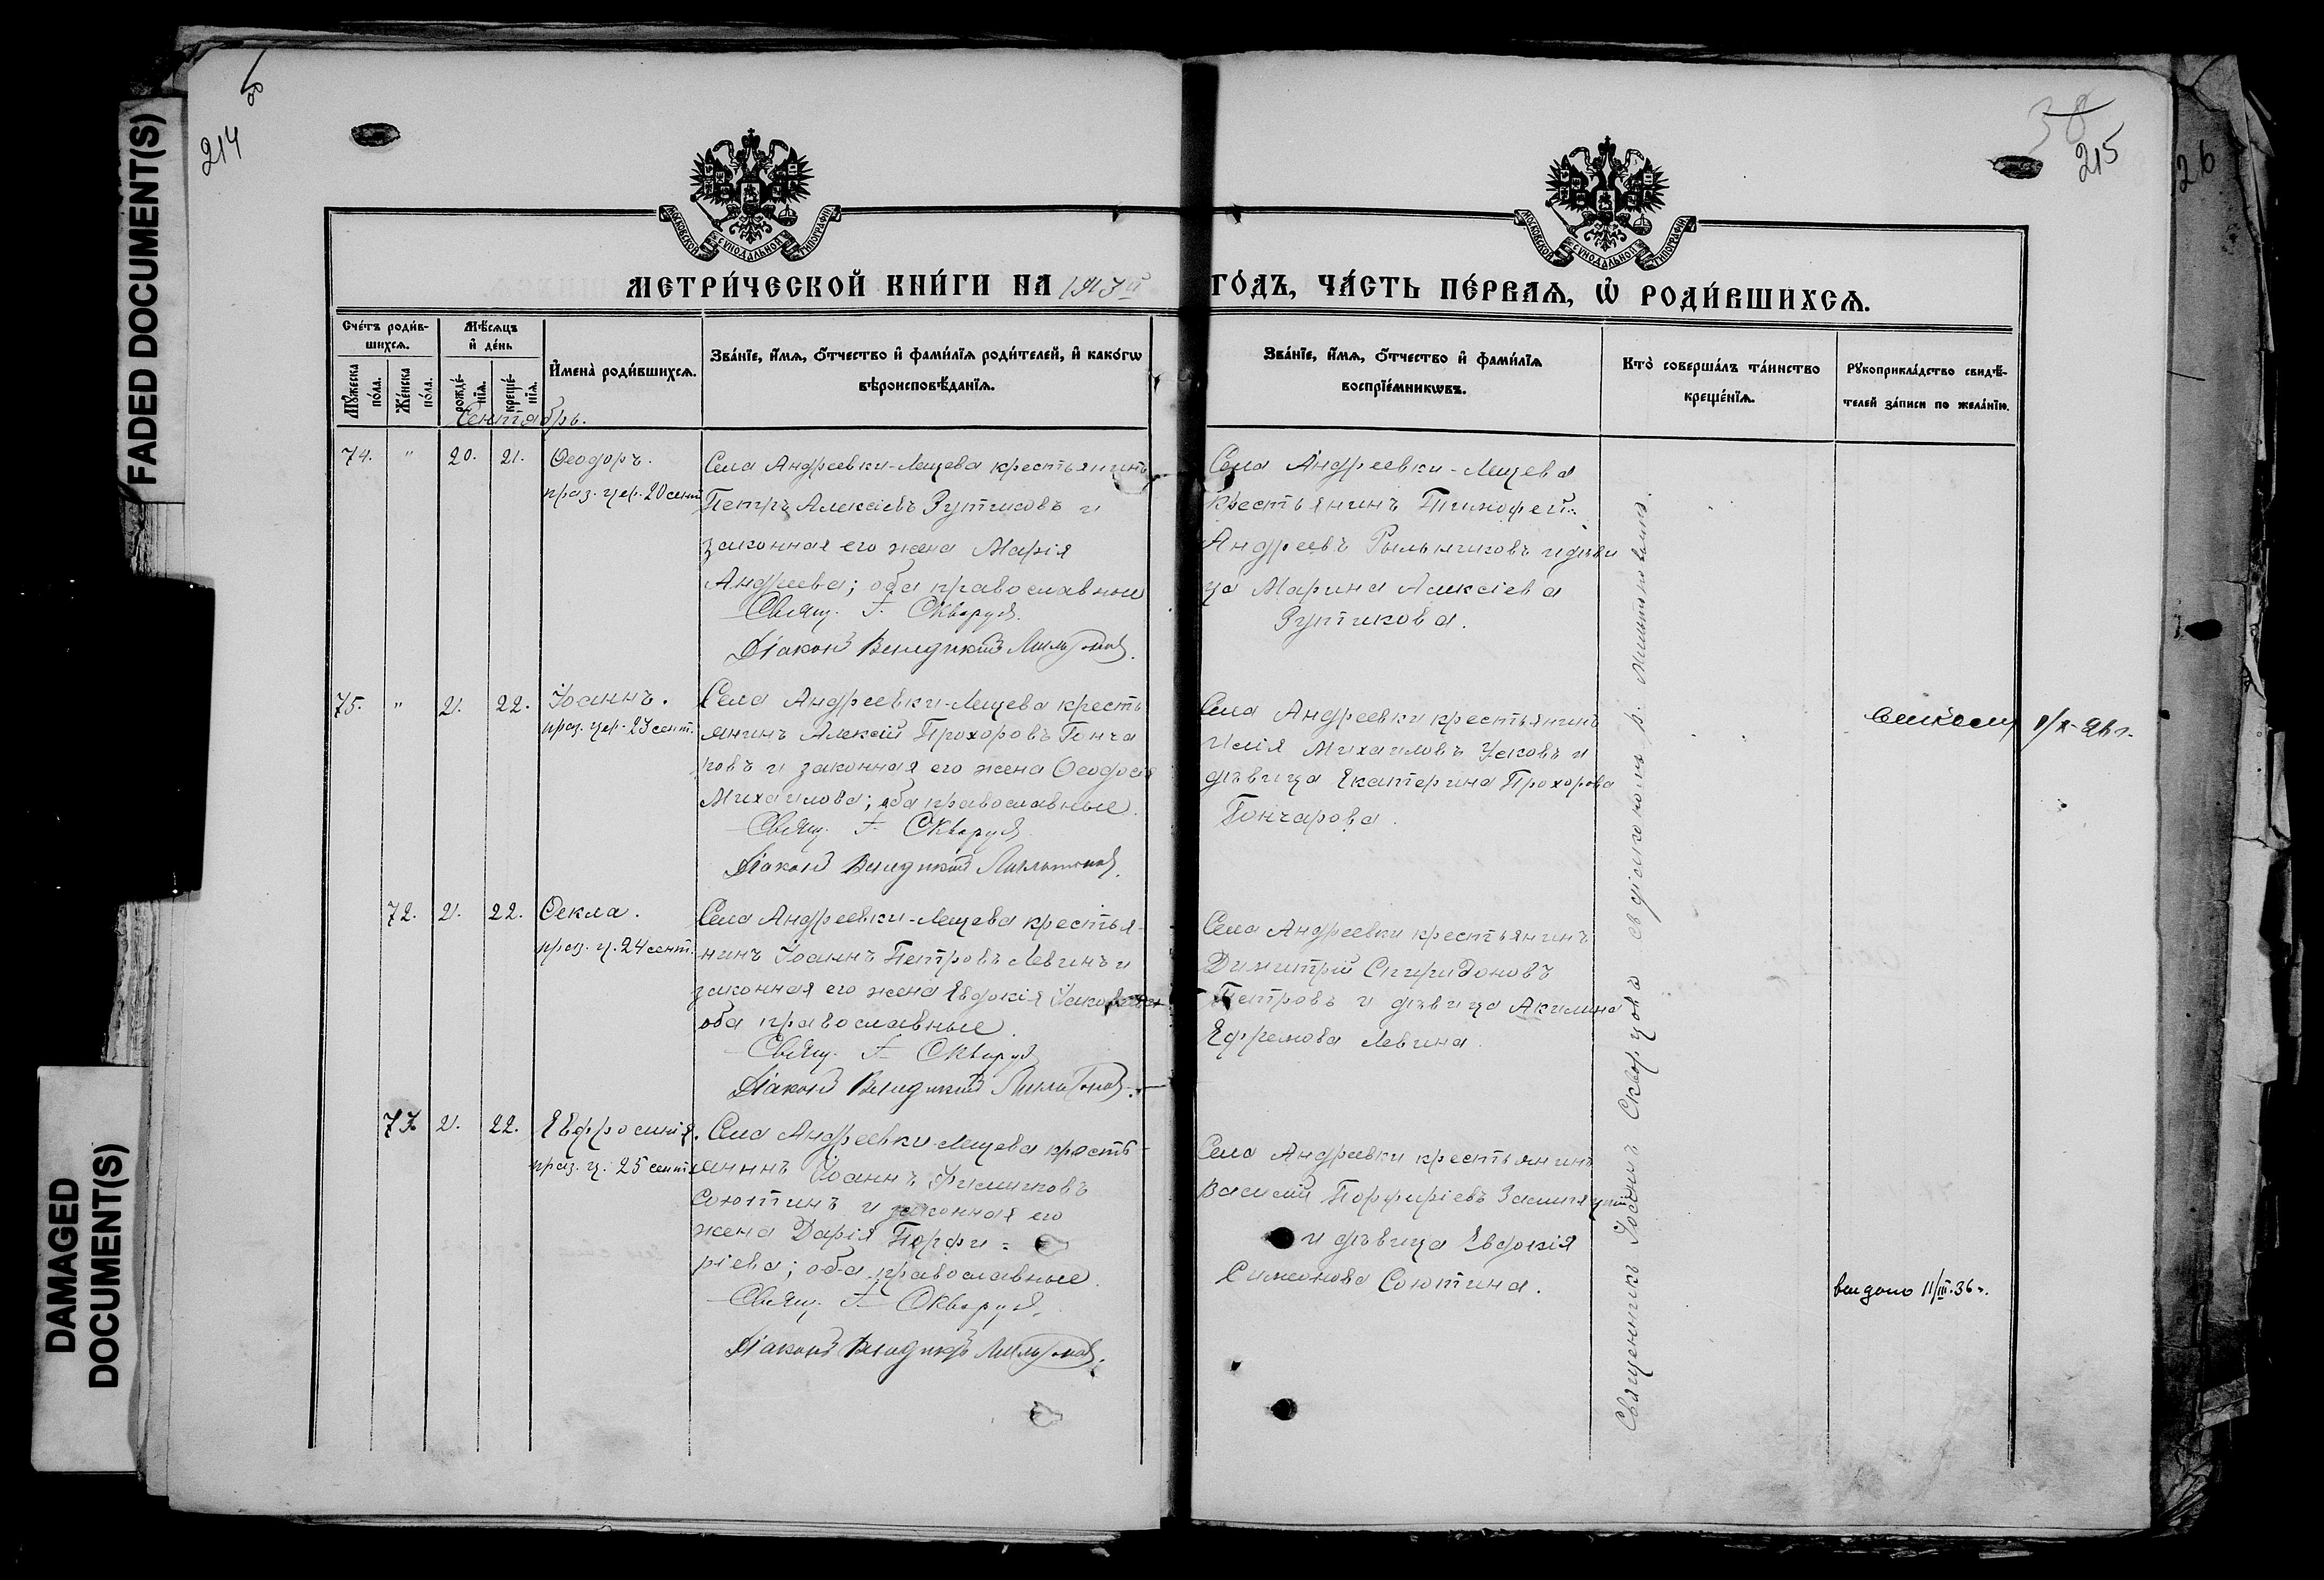 FADED DOCUMENT(S)
DAMAGED
DOCUMENT(S)
214
38
215
26
МОСКОВСКОЙ СѴНОДАЛЬНОЙ ТИПОГРАФІИ
МОСКОВСКОЙ СѴНОДАЛЬНОЙ ТИПОГРАФІИ
МЕТРИ́ЧЕСКОЙ КНИ́ГИ НА 1913й ГО́ДЪ, ЧА́СТЬ ПЕ́РВАѦ, Ѡ҆ РОДИ́ВШИХСѦ.
Сче́тъ роди́в-
шихсѧ.
Мꙋ́жеска по́ла.
Же́нска по́ла.
Мѣ́сѧцъ
и҆ де́нь
рожде́-
нїѧ.
креще́-
нїѧ.
И҆мена̀ роди́вшихсѧ.
Зва́нїе, и҆́мѧ, ѻ҆́тчество и҆ фами́лїѧ роди́телей, и҆ како́гѡ
вѣроисповѣ́данїѧ.
Зва́нїе, и҆́мѧ, ѻ҆́тчество и҆ фами́лїѧ
воспрїе́мникѡвъ.
Кто̀ соверша́лъ та́инство
креще́нїѧ.
Рꙋкоприкла́дство свидѣ́-
телей за́писи по жела́нїю.
Сентябрь.
74. " 20. 21. Ѳеодоръ.
праз. цер. 20 сент.
Села Андреевки-Лещева крестьянинъ
Петръ Алексіевъ Зутиковъ и
законная его жена Марія
Андреева; оба православные
Свящ. І. Скворцов.
Діаконъ Венедиктъ Мильтонов.
Села Андреевки-Лещева
крестьянинъ Тимофей
Андреевъ Рыльниковъ и дѣви
ца Марина Алексіева
Зутикова.
75. " 21. 22. Іоаннъ.
праз. цер. 23 сент.
Села Андреевки-Лещева кресть
янинъ Алексій Прохоровъ Гонча
ровъ и законная его жена Ѳеодосія
Михаилова; оба православные.
Свящ. І. Скворцов
Діаконъ Венедиктъ Мильтонов.
Села Андреевки крестьянинъ
Илія Михаиловъ Усковъ и
дѣвица Екатерина Прохорова
Гончарова.
72. 21. 22. Ѳекла.
праз. ц. 24 сент.
Села Андреевки-Лещева крестья-
нинъ Іоаннъ Петровъ Левинъ и
законная его жена Евдокія
оба православные.
Свящ. І. Скворцов
Діаконъ Венедиктъ Мильтонов.
Села Андреевки крестьянинъ
Димитрій Спиридоновъ
Петровъ и дѣвица Акилина
Ефремова Левина.
73. 21. 22. Евфросинія.
праз. ц. 25 сент.
Села Андреевки-Лещева кресть-
янинъ Іоаннъ Филипповъ
Союшинъ и законная его
жена Дарія Порфи=
ріева; оба православные.
Свящ. І. Скворцов.
Діаконъ Венедиктъ Мильтонов.
Села Андреевки крестьянинъ
Василій Порфиріевъ
и дѣвица Евдокія
Симеонова Союшина.
Священникъ Іоаннъ Скворцовъ съ діакономъ В. Мильтоновымъ.
выдано 11/III.36 г.